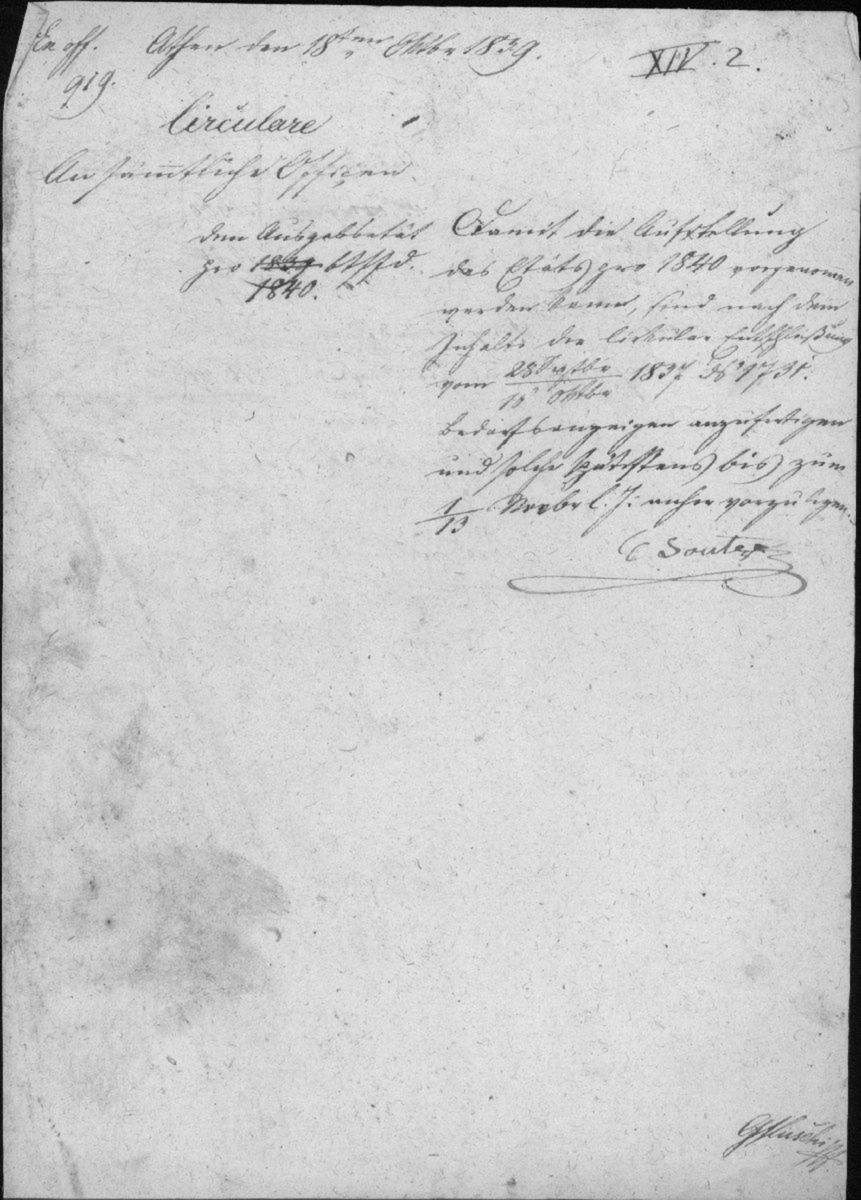 Ex off. Athen den 18ten Oktbr 1839.
XIV. 2.
919.
Circulare
An sämmtliche Offizen.
den Ausgabsetät
pro 1839 btffd.
1840.
Damit die Aufstellung
des Etäts pro 1840 vorgenomen
werden kann, sind nach dem
Inhalte der Cirkular Entschließung
vom 28 Septbr / 10 Oktbr 1837 No 1731.
Bedarfsanzeigen anzufertigen
und solche spätestens bis zum
1/13 Novbr l. J. anher vorzulegen.